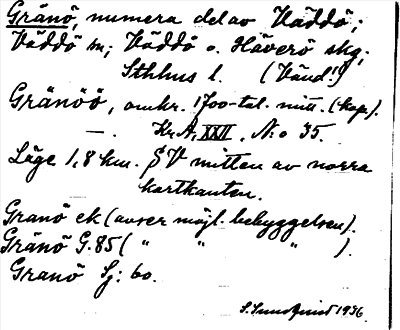 Gränö, numera del av Väddö;
Väddö sn; Väddö o. Häverö skg;
Sthlms l. (Vänd!)
Gränöö, omkr. 1700-tal. mitt. (kop.).
— . Kr. A, XXII, N:o 35.
Läge 1,8 km. SV mitten av norra
kartkanten.
Granö ek (avser möjl. bebyggelsen).
Gränö G. 85 ( " " " ).
Granö Sj: 60.
S. Sundquist 1936.